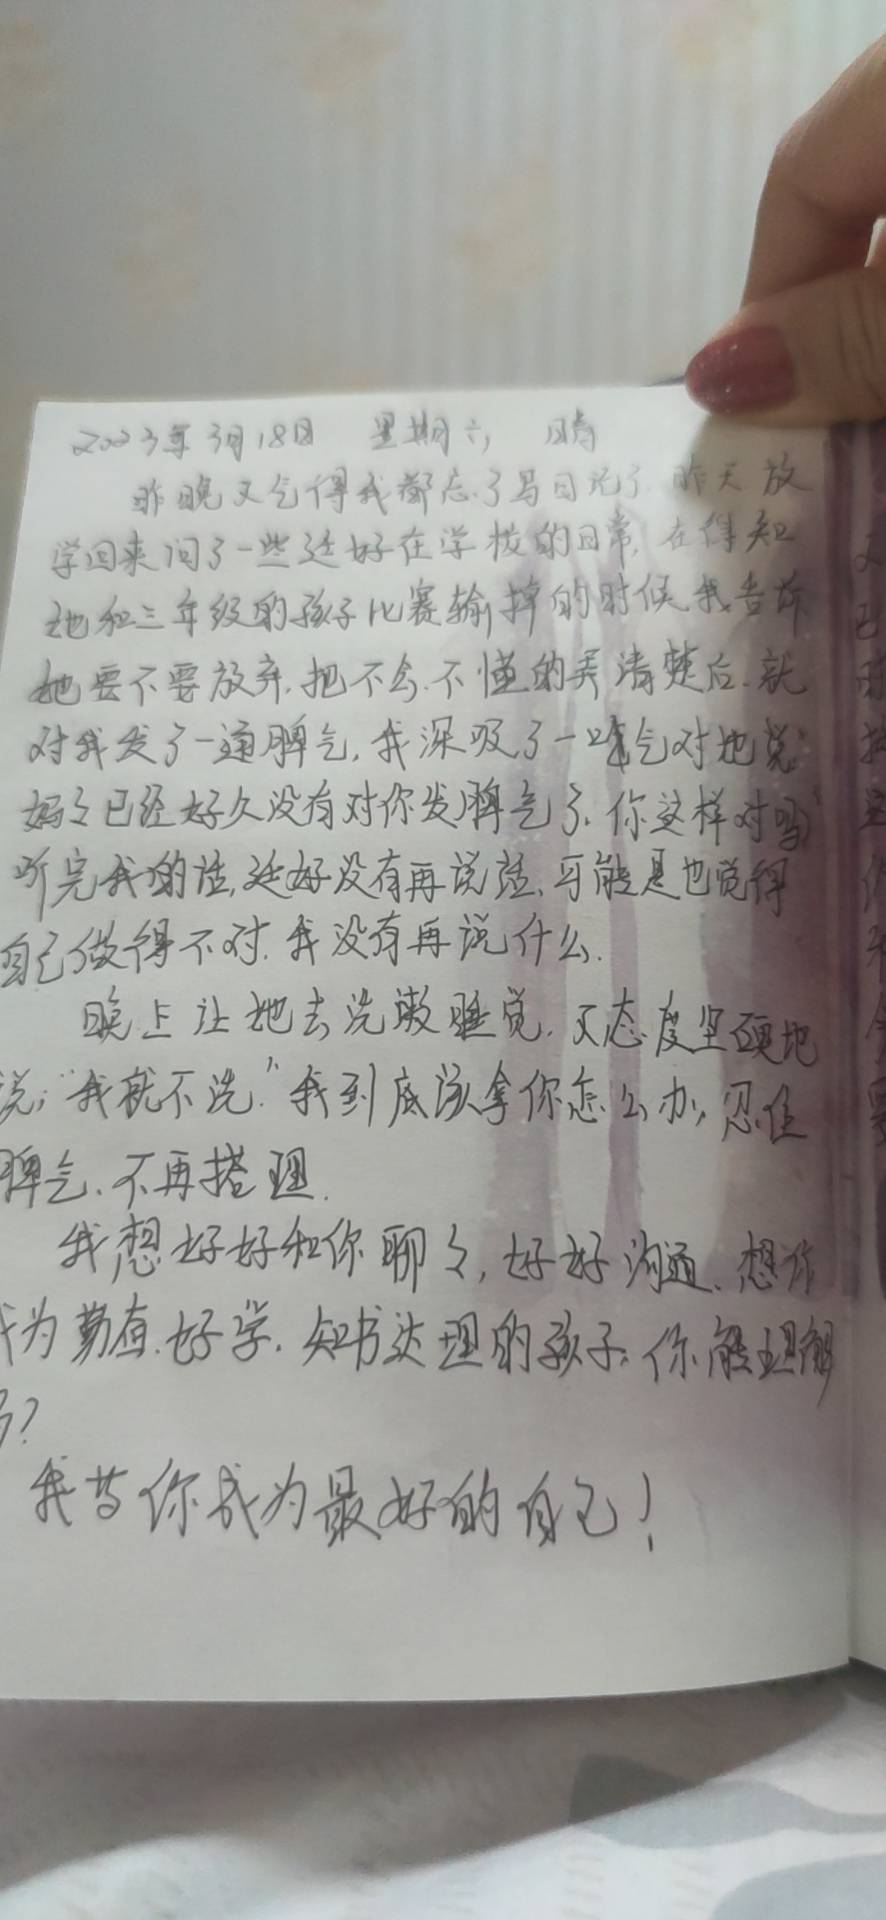 2023年3月18日 星期六 晴
昨晚又气得我都忘了写日记了.昨天放
学回来问了一些廷好在学校的日常,在得知
她和三年级的孩子比赛输掉的时候,我告诉
她要不要放弃.把不会.不懂的弄清楚后.就
对我发了一通脾气,我深吸了一口气对她说:"
妈々已经好久没有对你发脾气了.你这样对吗"
听完我的话,廷好没有再说话.可能是也觉得
自己做得不对.我没有再说什么.
晚上让她去洗漱睡觉.又态度坚硬地
说:"我就不洗."我到底该拿你怎么办,忍住
脾气.不再搭理.
我想好好和你聊々,好好沟通.想你
成为勤奋.好学.知书达理的孩子.你能理解
吗?
我等你成为最好的自己!